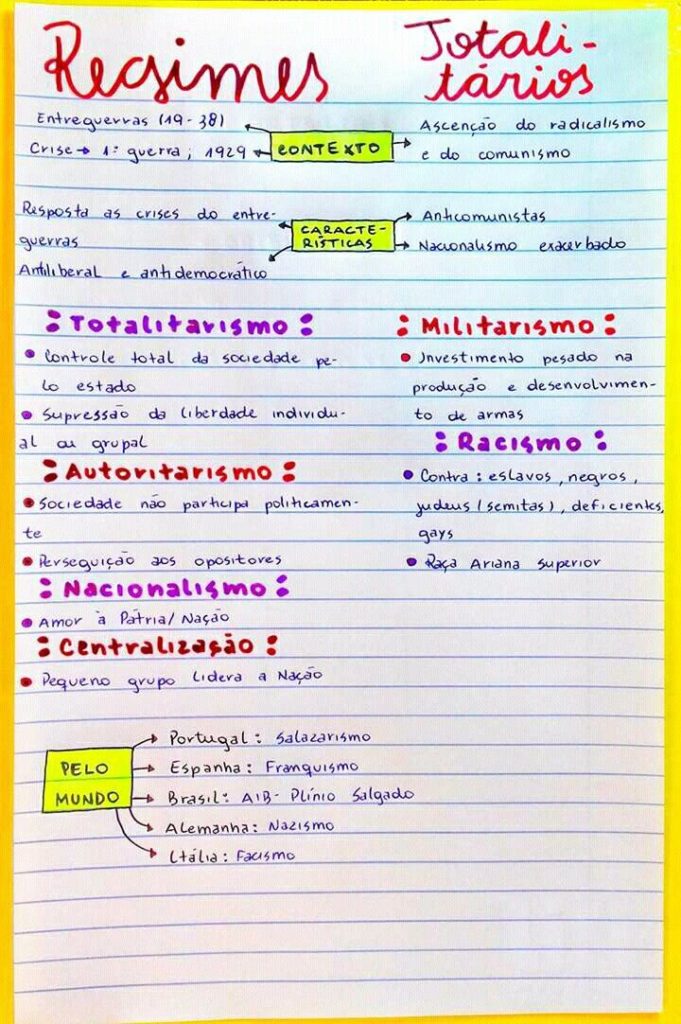 Regimes Totali-
tários
Entreguerras (19-38)
Crise → 1ª guerra; 1929
CONTEXTO
Ascenção do radicalismo
e do comunismo
Resposta as crises do entre-
guerras
Antiliberal e antidemocrático
CARACTE-
RÍSTICAS
Anticomunistas
Nacionalismo exacerbado
Totalitarismo
• Controle total da sociedade pe-
lo estado
• Supressão da liberdade individu-
al ou grupal
Autoritarismo
• Sociedade não participa politicamen-
te
• Perseguição aos opositores
Nacionalismo
• Amor à Pátria/Nação
Centralização
• Pequeno grupo lidera a Nação
Militarismo
• Investimento pesado na
produção e desenvolvimen-
to de armas
Racismo
• Contra: eslavos, negros,
judeus (semitas), deficientes,
gays
• Raça Ariana superior
PELO
MUNDO
Portugal: Salazarismo
Espanha: Franquismo
Brasil: AIB- Plínio Salgado
Alemanha: Nazismo
Itália: Facismo